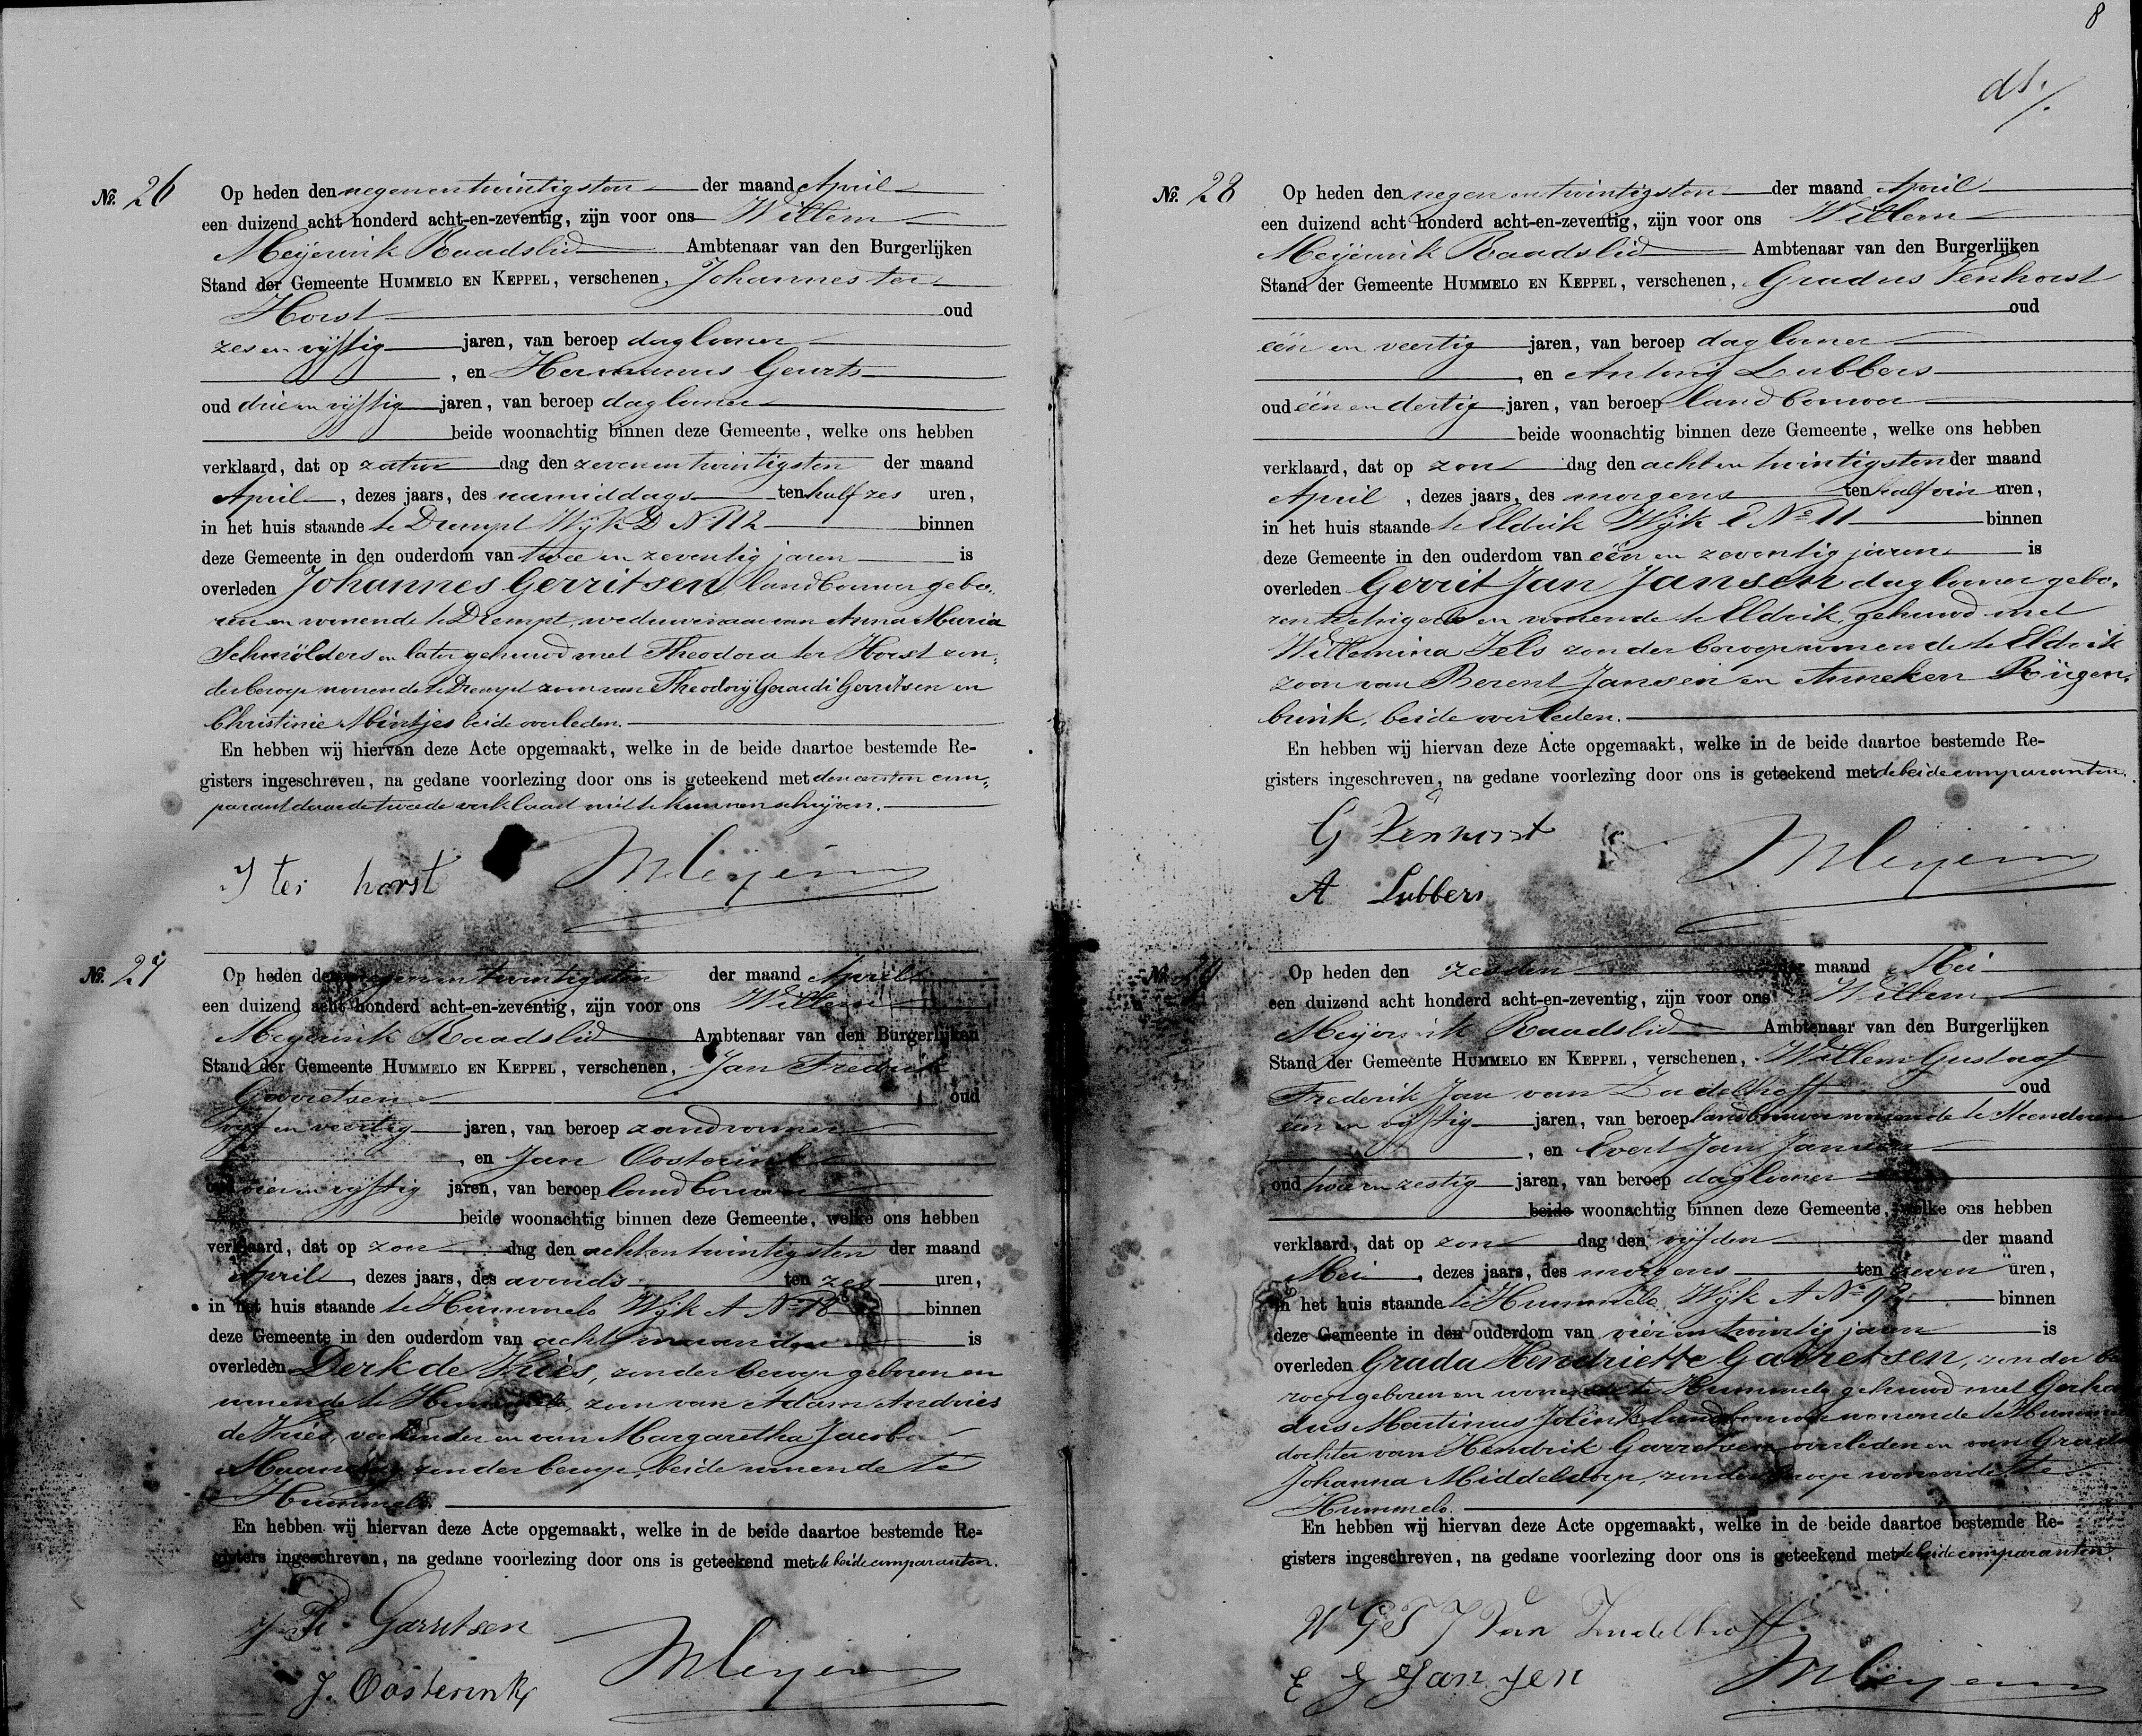 8
dl.
No. 26
Op heden den negenentwintigsten der maand April
een duizend acht honderd acht-en-zeventig, zijn voor ons Willem
Meijerink Raadslid Ambtenaar van den Burgerlijken
Stand der Gemeente HUMMELO EN KEPPEL, verschenen, Johannes ter
Horst oud
zes en vijftig jaren, van beroep daglooner
, en Hermanus Geurts
oud drie en vijftig jaren, van beroep daglooner
beide woonachtig binnen deze Gemeente, welke ons hebben
verklaard, dat op zatur dag den zevenentwintigsten der maand
April, dezes jaars, des namiddags ten half zes uren,
in het huis staande te Drempt Wijk D No 112 binnen
deze Gemeente in den ouderdom van twee en zeventig jaren is
overleden Johannes Gerritsen, landbouwer gebo-
ren en wonende te Drempt, weduwenaar van Anna Maria
Schmölders en later gehuwd met Theodora ter Horst zon-
der beroep wonende te Drempt zoon van Theodorij Gerardi Gerritsen en
Christinie Mintjes beide overleden.
En hebben wij hiervan deze Acte opgemaakt, welke in de beide daartoe bestemde Re-
gisters ingeschreven, na gedane voorlezing door ons is geteekend met den eersten com-
parant daar de tweede verklaart niet te kunnen schrijven.
J ter horst
WMeijerink
No. 27
Op heden den negenentwintigsten der maand April
een duizend acht honderd acht-en-zeventig, zijn voor ons Willem
Meijerink Raadslid Ambtenaar van den Burgerlijken
Stand der Gemeente HUMMELO EN KEPPEL, verschenen, Jan Fredrik
Garretsen oud
vijf en veertig jaren, van beroep
, en Jan Oosterink
oud vier en vijftig jaren, van beroep landbouwer
beide woonachtig binnen deze Gemeente, welke ons hebben
verklaard, dat op zon dag den achtentwintigsten der maand
April, dezes jaars, des avonds ten zes uren,
in het huis staande te Hummelo Wijk A No 18 binnen
deze Gemeente in den ouderdom van acht maanden is
overleden Derk de Vries, zonder beroep geboren en
wonende te Hummelo, zoon van Adam Andries
de Vries, en van Margaretha Jacoba
zonder beroep, beide wonende te
Hummelo.
En hebben wij hiervan deze Acte opgemaakt, welke in de beide daartoe bestemde Re-
gisters ingeschreven, na gedane voorlezing door ons is geteekend met de beide comparanten.
J Fr. Garretsen
J. Oosterink
WMeijerink
No. 28
Op heden den negen en twintigsten der maand April
een duizend acht honderd acht-en-zeventig, zijn voor ons Willem
Meijerink Raadslid Ambtenaar van den Burgerlijken
Stand der Gemeente HUMMELO EN KEPPEL, verschenen, Gradus Venhorst
oud
één en veertig jaren, van beroep daglooner
, en Antonij Lubbers
oud één en dertig jaren, van beroep landbouwer
beide woonachtig binnen deze Gemeente, welke ons hebben
verklaard, dat op zon dag den acht en twintigsten der maand
April, dezes jaars, des morgens ten half vier uren,
in het huis staande te Eldrik Wijk No 11 binnen
deze Gemeente in den ouderdom van één en zeventig jaren is
overleden Gerrit Jan Jansen daglooner gebo-
ren te en wonende te Eldrik, gehuwd met
Willemina Iels zonder beroep wonende te Eldrik
zoon van Berent Jansen en Anneken Rügen-
brink, beide overleden.
En hebben wij hiervan deze Acte opgemaakt, welke in de beide daartoe bestemde Re-
gisters ingeschreven, na gedane voorlezing door ons is geteekend met de beide comparanten.
G Venhorst
A Lubbers
WMeijerink
No. 29
Op heden den zesden der maand Mei
een duizend acht honderd acht-en-zeventig, zijn voor ons Willem
Meijerink Raadslid Ambtenaar van den Burgerlijken
Stand der Gemeente HUMMELO EN KEPPEL, verschenen, Willem Gustaaf
Frederik Jan van Zudelhoff oud
één en vijftig jaren, van beroep landbouwer wonende te
, en Evert Jan Jansen
oud twee en zestig jaren, van beroep daglooner
beide woonachtig binnen deze Gemeente, welke ons hebben
verklaard, dat op zon dag den vijfden der maand
Mei, dezes jaars, des morgens ten zeven uren,
in het huis staande te Hummelo Wijk A No binnen
deze Gemeente in den ouderdom van vier en twintig jaren is
overleden Grada Hendriette Garretsen, zonder be
roep geboren en wonende te Hummelo gehuwd met Gerha
dus Martinus Jolink landbouwer wonende te Hummelo
dochter van Hendrik Garretsen overleden en van Grada
Johanna Middeldorp, zonder beroep wonende te
Hummelo.
En hebben wij hiervan deze Acte opgemaakt, welke in de beide daartoe bestemde Re-
gisters ingeschreven, na gedane voorlezing door ons is geteekend met de beide comparanten.
W G F J Van Zudelhoff
E J Jansen
WMeijerink